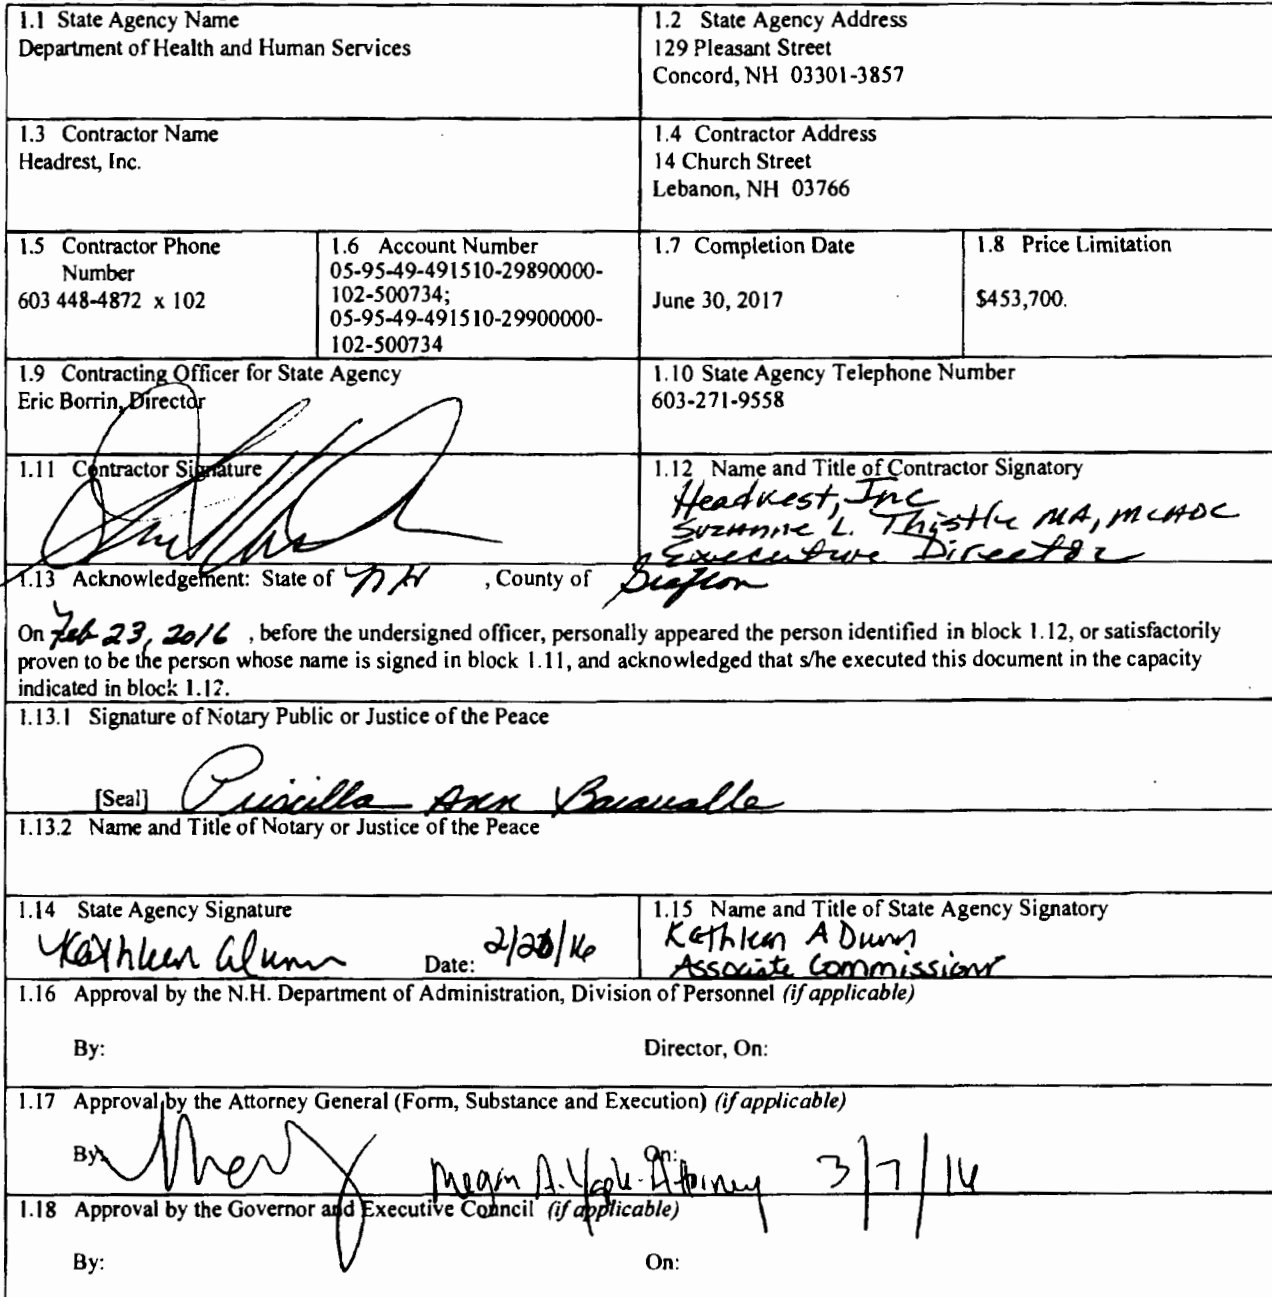 1.1 State Agency Name
Department of Health and Human Services
1.2 State Agency Address
129 Pleasant Street
Concord, NH 03301-3857
1.3 Contractor Name
Headrest, Inc.
1.4 Contractor Address
14 Church Street
Lebanon, NH 03766
1.5 Contractor Phone
Number
603 448-4872 x 102
1.6 Account Number
05-95-49-491510-29890000-
102-500734;
05-95-49-491510-29900000-
102-500734
1.7 Completion Date
June 30, 2017
1.8 Price Limitation
$453,700.
1.9 Contracting Officer for State Agency
Eric Borrin, Director
1.10 State Agency Telephone Number
603-271-9558
1.11 Contractor Signature
1.12 Name and Title of Contractor Signatory
Headrest, Inc
Suzanne L. Thistle MA, MLADC
Executive Director
1.13 Acknowledgement: State of NH , County of Grafton
On Feb 23, 2016 , before the undersigned officer, personally appeared the person identified in block 1.12, or satisfactorily
proven to be the person whose name is signed in block 1.11, and acknowledged that s/he executed this document in the capacity
indicated in block 1.12.
1.13.1 Signature of Notary Public or Justice of the Peace
[Seal] Priscilla Ann
1.13.2 Name and Title of Notary or Justice of the Peace
1.14 State Agency Signature
Kathleen A Dunn Date:
1.15 Name and Title of State Agency Signatory
Kathleen A Dunn
Associate Commissioner
1.16 Approval by the N.H. Department of Administration, Division of Personnel (if applicable)
By: Director, On:
1.17 Approval by the Attorney General (Form, Substance and Execution) (if applicable)
By: On:
Megan A. Attorney 3/7/16
1.18 Approval by the Governor and Executive Council (if applicable)
By: On: